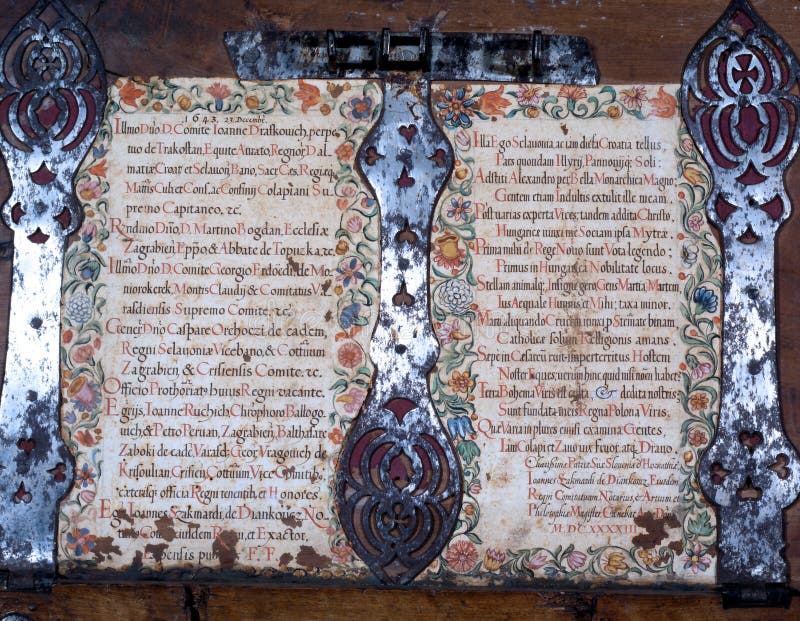 1643, 23 Decembr.
Illmo Dño. D. Comite Ioanne Draskouich, perpe
tuo de Trakostan, Equite Aurato, Regnor. Dal
matiæ Croat et Selauon Bano, Sacr. Cæs. Reg. q.
Maitis Cub. et Cons. ac Confinij Colapiani Su
premo Capitaneo, &c.
Rndmo Dño. D. Martino Bogdan, Ecclesiæ
Zagrabien Eppo, & Abbate de Topuzka, &c.
Illmo Dño. D. Comite Georgio Erdoedi, de Mo
niorokerek, Montis Claudij & Comitatus Va
rasdiensis Supremo Comite. &c.
Gener. Dño Caspare Orehoczi de eadem,
Regni Selauoniæ Vicebano, & Cottuum
Zagrabien & Crisiensis Comite. &c.
Officio Prothonot. huius Regni vacante.
Egrijs, Ioanne Ruchich, Chrophoro Ballogo
uich, & Petro Peruan, Zagrabien, Balthasare
Zaboki de eadē Varasd. Georg Vragouich de
Krisoulian Crisien Cottuum Vice Comitib.
cæterisq. officia Regni tenentib. et Honores.
Ego Ioannes Szakmardi, de Diankouez No
Regni, et Exactor,
Expensis F. F.
Illa Ego Selauonia, ac iam dicta Croatia tellus,
Pars quondam Illyrij, Pannonijq. Soli;
Adstiti Alexandro per Bella Monarchica Magno;
Gentem etiam Indultis extulit ille meam.
Post varias experta Vices, tandem addita Christo,
Hungaricæ iunxi me Sociam ipsa Mytræ.
Prima mihi de Rege Nouo sunt Vota legendo;
Primus in Hungarica Nobilitate locus.
Stellam animalq. Insigne gero Gens Martia Martem,
Ius Aequale Hunnis et Mihi; taxa minor.
Mart aliquando Crucem pro Stemate binam,
Catholicæ solum Religionis amans.
Sæpe in Cæsarem ruit imperterritus Hostem
Noster Eques; uerum hinc quid nisi nomen habet?
Terra Bohema Viris & dedita nostris;
Sunt fundata meis Regna Polona Viris.
Quæ Varia in plures emisi examina Gentes
Iam Colapi et Zauum feuor, atq. Drauo.
Charissimæ Patriæ Suæ Slauoniæ et Horuatiæ
Ioannes Szakmardi de Diankouez, Eiusdem
Regni Comitatuum Notarius, & Artium et
Philosophiæ Magister
M.DC.XXXXIII